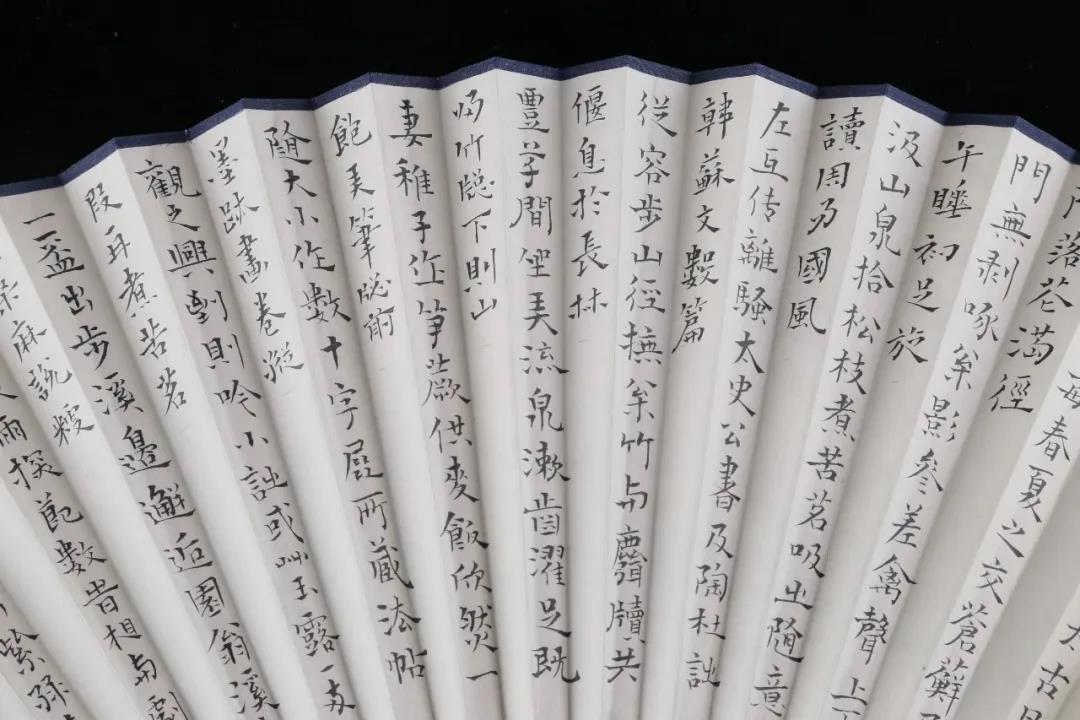 太古
每春夏之交蒼蘚
落花滿徑
門無剥啄枀影參差禽聲上
午睡初足旋
汲山泉拾松枝煮苦茗吸之隨意
讀周易國風
左氏传離騷太史公書及陶杜詩
韓蘇文數篇
從容步山徑撫枀竹与麛犢共
偃息於長林
豐草間坐弄流泉漱齒濯足既
歸竹牕下則山
妻稚子作筍蕨供麥飯欣然一
飽弄筆牕前
隨大小作數十字展所藏法帖
墨跡畫卷縱
觀之興到則吟小詩或艸玉露一两
段再煮苦茗
一盃出步溪邊邂逅園翁溪
桑麻說粳
雨探節數時相与劇
紫綠